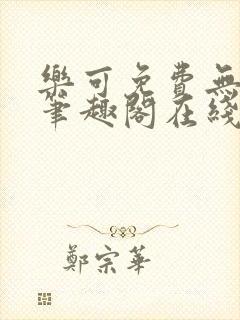 樂可免費無
筆趣閣在綫
鄭宗華